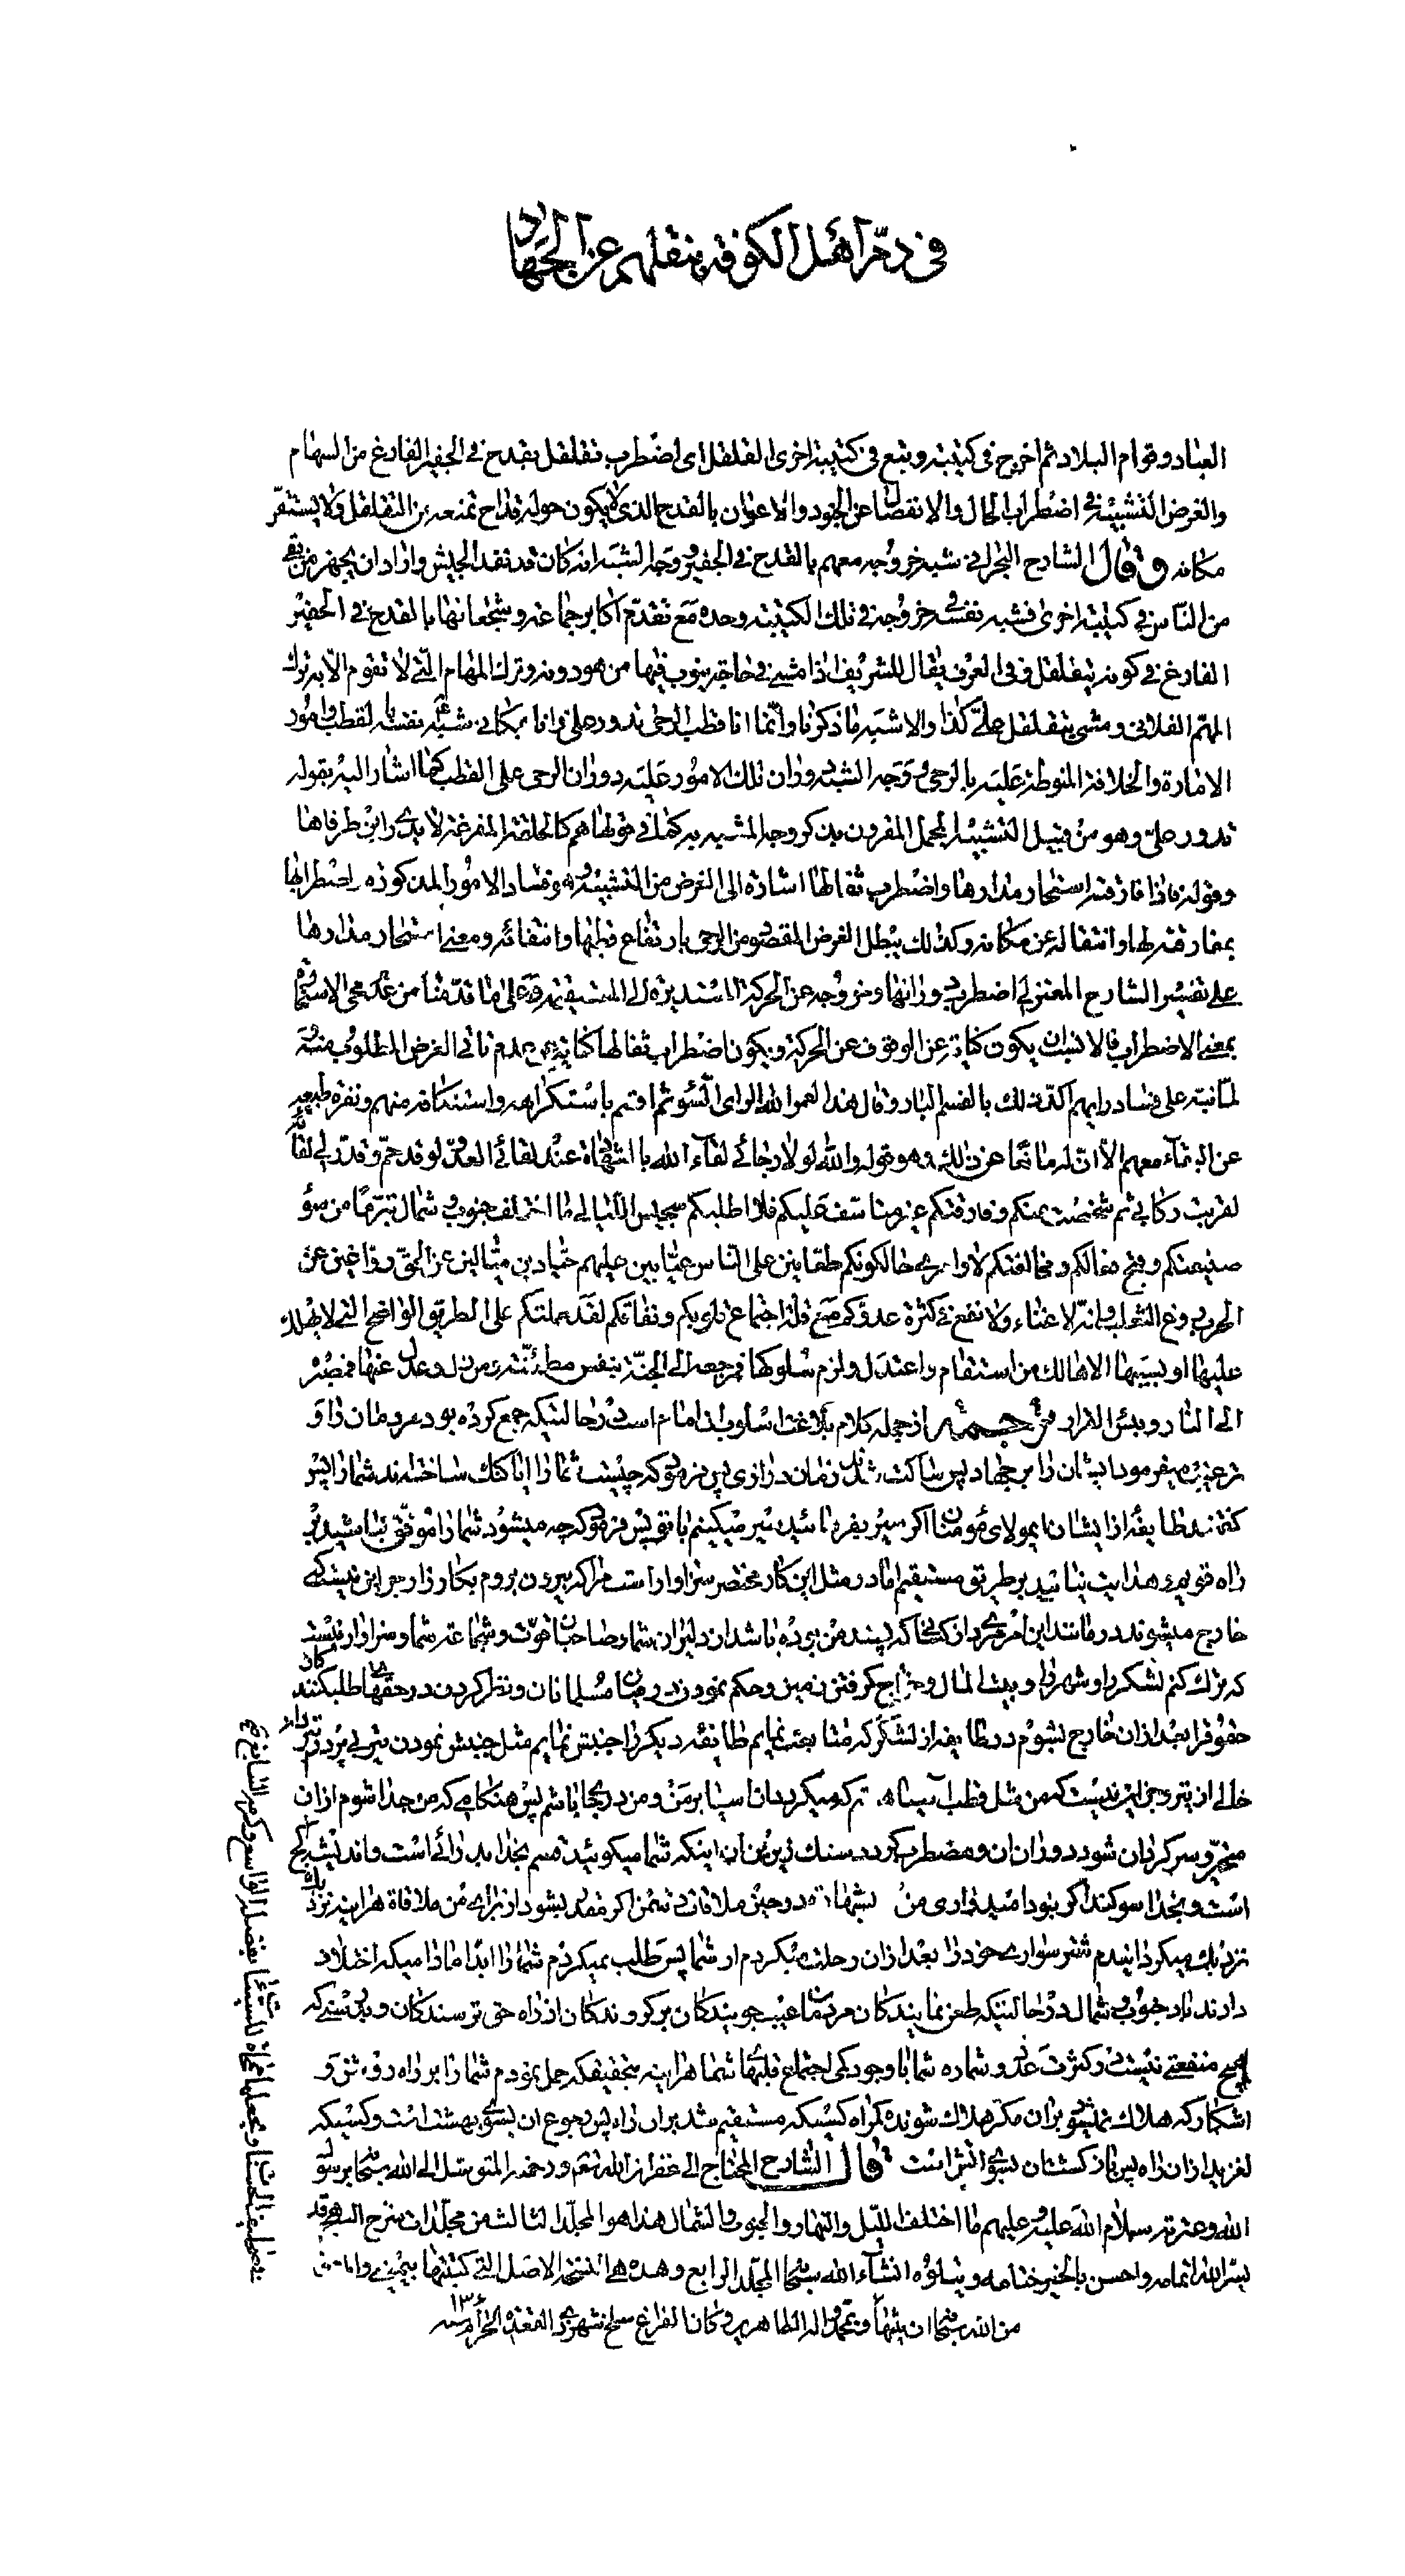 في ذمّ أهل الكوفة بتثقلهم عن الجهاد
العباد وقوام البلاد ثم اخرج في كتيبة وتبع في كتيبة اخرى اتقلقل اى اضطرب تقلقل القدح في الجفير الفارغ من السهام
والغرض التشبيه في اضطراب الحال والانفصال عن الجنود والاعوان بالقدح الذى لا يكون حوله قداح تمنعه من التقلقل ولا يستقرّ
مكانه وقال الشارح البحراني شبه خروجه معهم بالقدح في الجفير ووجه الشبه انه كان قد نفد الجيش واراد ان يجهز من بقى
من الناس في كتيبة اخرى فشبه نفسه في خروجه في تلك الكتيبة وحده مع تقدّم اكابر جماعته وشجعانها بالقدح في الجفير
الفارغ في كونه يتقلقل وفي العرف يقال للشريف اذا مشى في حاجة ينوب فيها من هو دونه وترك المهام التي لا تقوم الّا به ترك
المهم الفلاني ومشى يتقلقل على كذا والاشبه ما ذكرناه وانّما انا قطب الرحى تدور علىّ وانا بمكاني شبّه نفسه بالقطب وامور
الامارة والخلافة المنوطة عليه بالرحى ووجه الشبه دوران تلك الامور عليه دوران الرحى على القطب كما اشار اليه بقوله
تدور علىّ وهو من قبيل التشبيه المجمل المقرون بذكر وجه المشبه به كما في قولها هم كالحلقة المفرغة لا يدرى اين طرفاها
وقوله فاذا فارقته استحار مدارها واضطرب ثفالها اشارة الى الغرض من التشبيه وهو فساد الامور المذكورة واضطرابها
بمفارقته لها وانتقاله عن مكانه وكذلك يبطل الغرض المقصود من الرحى بارتفاع قطبها وانتفائه ومعنى استحار مدارها
على تفسير الشارح المعتزلي اضطرب دورانها وخروجه عن الحركة المستديرة الى المستقيمة وعلى ما قدّمنا من عدم مجى الاستحارة
بمعنى الاضطراب فالانسب ان يكون كناية عن الوقوف عن الحركة ويكون اضطراب ثفالها كناية عن عدم تأتي الغرض المطلوب منه ثمّ
لمّا نبّه على فساد رايهم اكّد ذلك بالقسم البار وقال هذا لعمر الله الراى السّوء ثم اقسم باستكراهه واستنكافه منهم ونفرة طبعه
عن البقاء معهم الّا ان له مانعا عن ذلك وهو قوله والله لولا رجائي لقاء الله بالشهادة عند لقائي العدوّ لو قد حمّ وقدّر لي لقائه
لقربت ركابي ثم شخصت عنكم وفارقتكم غير متاسّف عليكم فلا اطلبكم سجيس الليالي ما اختلف جنوب وشمال تبرّما من سوء
صنيعتكم وقبح فعالكم ومخالفتكم لاوامرى حالكونكم طعّانين على الناس عيّابين عليهم حيّادين ميّالين عن الحق روّاغين عن
الحرب روغ الثعلب وانّه لا غناء ولا نفع في كثرة عددكم مع قلة اجتماع قلوبكم ونفاقكم لقد حملتكم على الطريق الواضح التي لا يهلك
عليها او بسببها الا هالك من استقام واعتدل ولزم سلوكها فمرجعه الى الجنّة بنفس مطمئنّة ومن زل وعدل عنها فمصيره
الى النار وبئس القرار ترجمة از جمله كلام بلاغت اسلوب آن امام است در حالتيكه جمع كرده بود مردمان را و
ترغيب ميفرمود ايشان را بر جهاد پس ساكت شدند زمان درازى پس فرمود كه چيست شما را آيا گنك ساخته‌اند شما را پس
گفتند طايفه از ايشان اى مولاى مؤمنان اگر سير بفرمائيد سير ميكنيم با تو پس فرمود كه چه ميشود شما را موفّق نباشيد بر
راه قويم و هدايت نيابيد بر طريق مستقيم آيا در مثل اين كار مختصر سزاوار است مرا كه بيرون بروم بكارزار جز اين نيست كه
خارج ميشوند در مانند اين امر مردى از كسانى كه پسنديده من بوده باشد از دليران شما و صاحبان قوّت و شجاعت شما و سزاوار نيست
كه ترك كنم لشكر را و شهر را و بيت المال و خراج گرفتن زمين و حكم نمودن در ميان مسلمانان و نظر كردن در حقهاى طلب كنندگان
حقوق را بعد از آن خارج بشوم در طايفه از لشگر كه متابعت نمايم طايفه ديگر را جنبش نمايم مثل جنبش نمودن تير بى پر در تيردان
خالى از تير و جز اين نيست كه من مثل قطب آسياه كه ميگردد آن آسيا بر من و من در جاى خود باشم پس هنگامى كه من جدا شوم از آن
متحيّر و سرگردان شود دوران آن و مضطرب گردد سنك زيرين آن اينكه شما ميگوئيد قسم بخدا بد رائى است و انديشه كج
است و بخدا سوگند اگر نبود اميدوارى من بشهادت در حين ملاقات دشمن اگر مقدّر بشود از براى من ملاقاة هر آينه نزد
نزديك ميگردانيدم شتر سوارى خود را بعد از آن رحلت ميكردم از شما پس طلب نميكردم شما را ابدا مادامى كه اختلاف
دارند باد جنوب و شمال در حالتيكه طعن نمايندگان مردمان عيب جويندگان برگردندگان از راه حق ترسندگان و بدرستى كه
هيچ منفعتى نيست در كثرت عدد و شماره شما با وجود كمى اجتماع قلبهاى شما هر آينه بتحقيق كه حمل نمودم شما را بر راه روشن و
آشكار كه هلاك نميشود بر آن مگر هلاك شونده گمراه كسيكه مستقيم شد بر آن راه پس رجوع آن بسوى بهشت است و كسيكه
لغزيد از آن راه پس بازگشت آن بسوى آتش است قال الشارح المحتاج الى غفران الله تعالى ورحمته المتوسّل الى الله سبحانه برسول
الله وعترته سلام الله عليه وعليهم ما اختلف الليل والنهار والجنوب والشمال هذا هو المجلّد الثالث من مجلّدات شرح النهج قد
يسّر الله اتمامه واحسن بالخير ختامه ويتلوه انشاء الله سبحانه المجلّد الرابع وهذه هي النسخة الاصل التي كتبتها بيميني
من الله سبحانه ان يثيبها بمحمّد وآله الطاهرين وكان الفراغ سلخ شهر ذى القعدة الحرام سنه